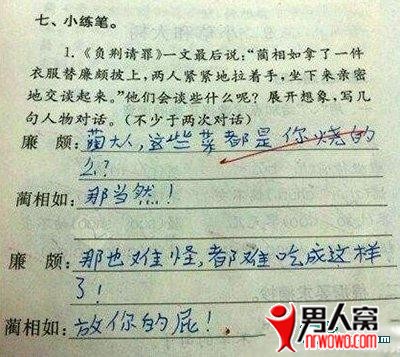 七、小练笔。
1.《负荆请罪》一文最后说:“蔺相如拿了一件
衣服替廉颇披上，两人紧紧地拉着手，坐下来亲密
地交谈起来。”他们会谈些什么呢？展开想象，写几
句人物对话。(不少于两次对话)
廉 颇:蔺大人，这些菜都是你烧的
么？
蔺相如:那当然！
廉 颇:那也难怪，都难吃成这样
了！
蔺相如:放你的屁！
男人窝
www.nrwowo.com